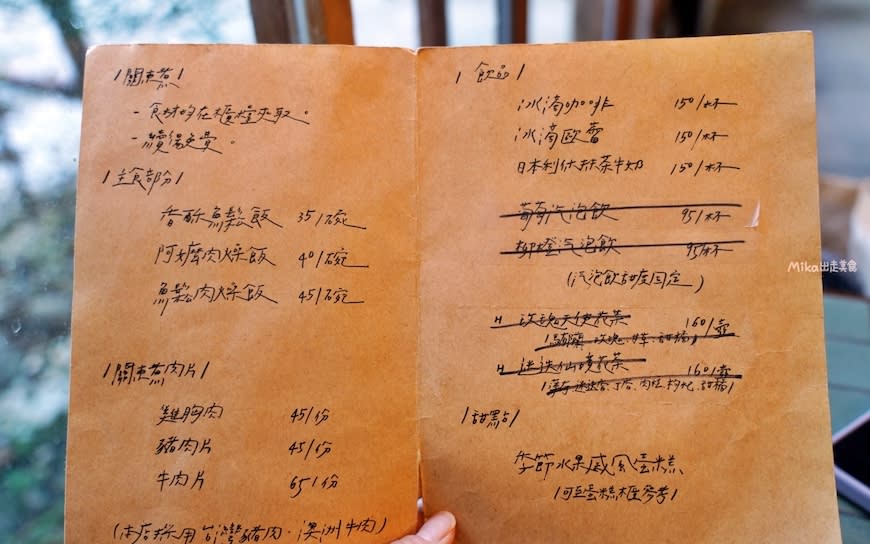 /關東煮/
- 食材均在櫃檯夾取。
- 續湯免費。
/主食部份/
香酥魚鬆飯 35/碗
阿嬤肉燥飯 40/碗
魚鬆肉燥飯 45/碗
/關東煮肉片/
雞胸肉 45/份
豬肉片 45/份
牛肉片 65/份
(本店採用台灣豬肉.澳洲牛肉)
/飲品/
冰滴咖啡 150/杯
冰滴歐蕾 150/杯
日本利休抹茶牛奶 150/杯
葡萄汽泡飲 95/杯
柳橙汽泡飲 95/杯
(汽泡飲甜度固定)
H 玫瑰天使花茶 160/壺
玫瑰.甜橘/
H 迷迭仙境花茶 160/壺
迷迭香.丁香.肉桂.枸杞.甜橘/
/甜點/
季節水果戚風蛋糕
/可至蛋糕櫃參考/
Mika出走美食